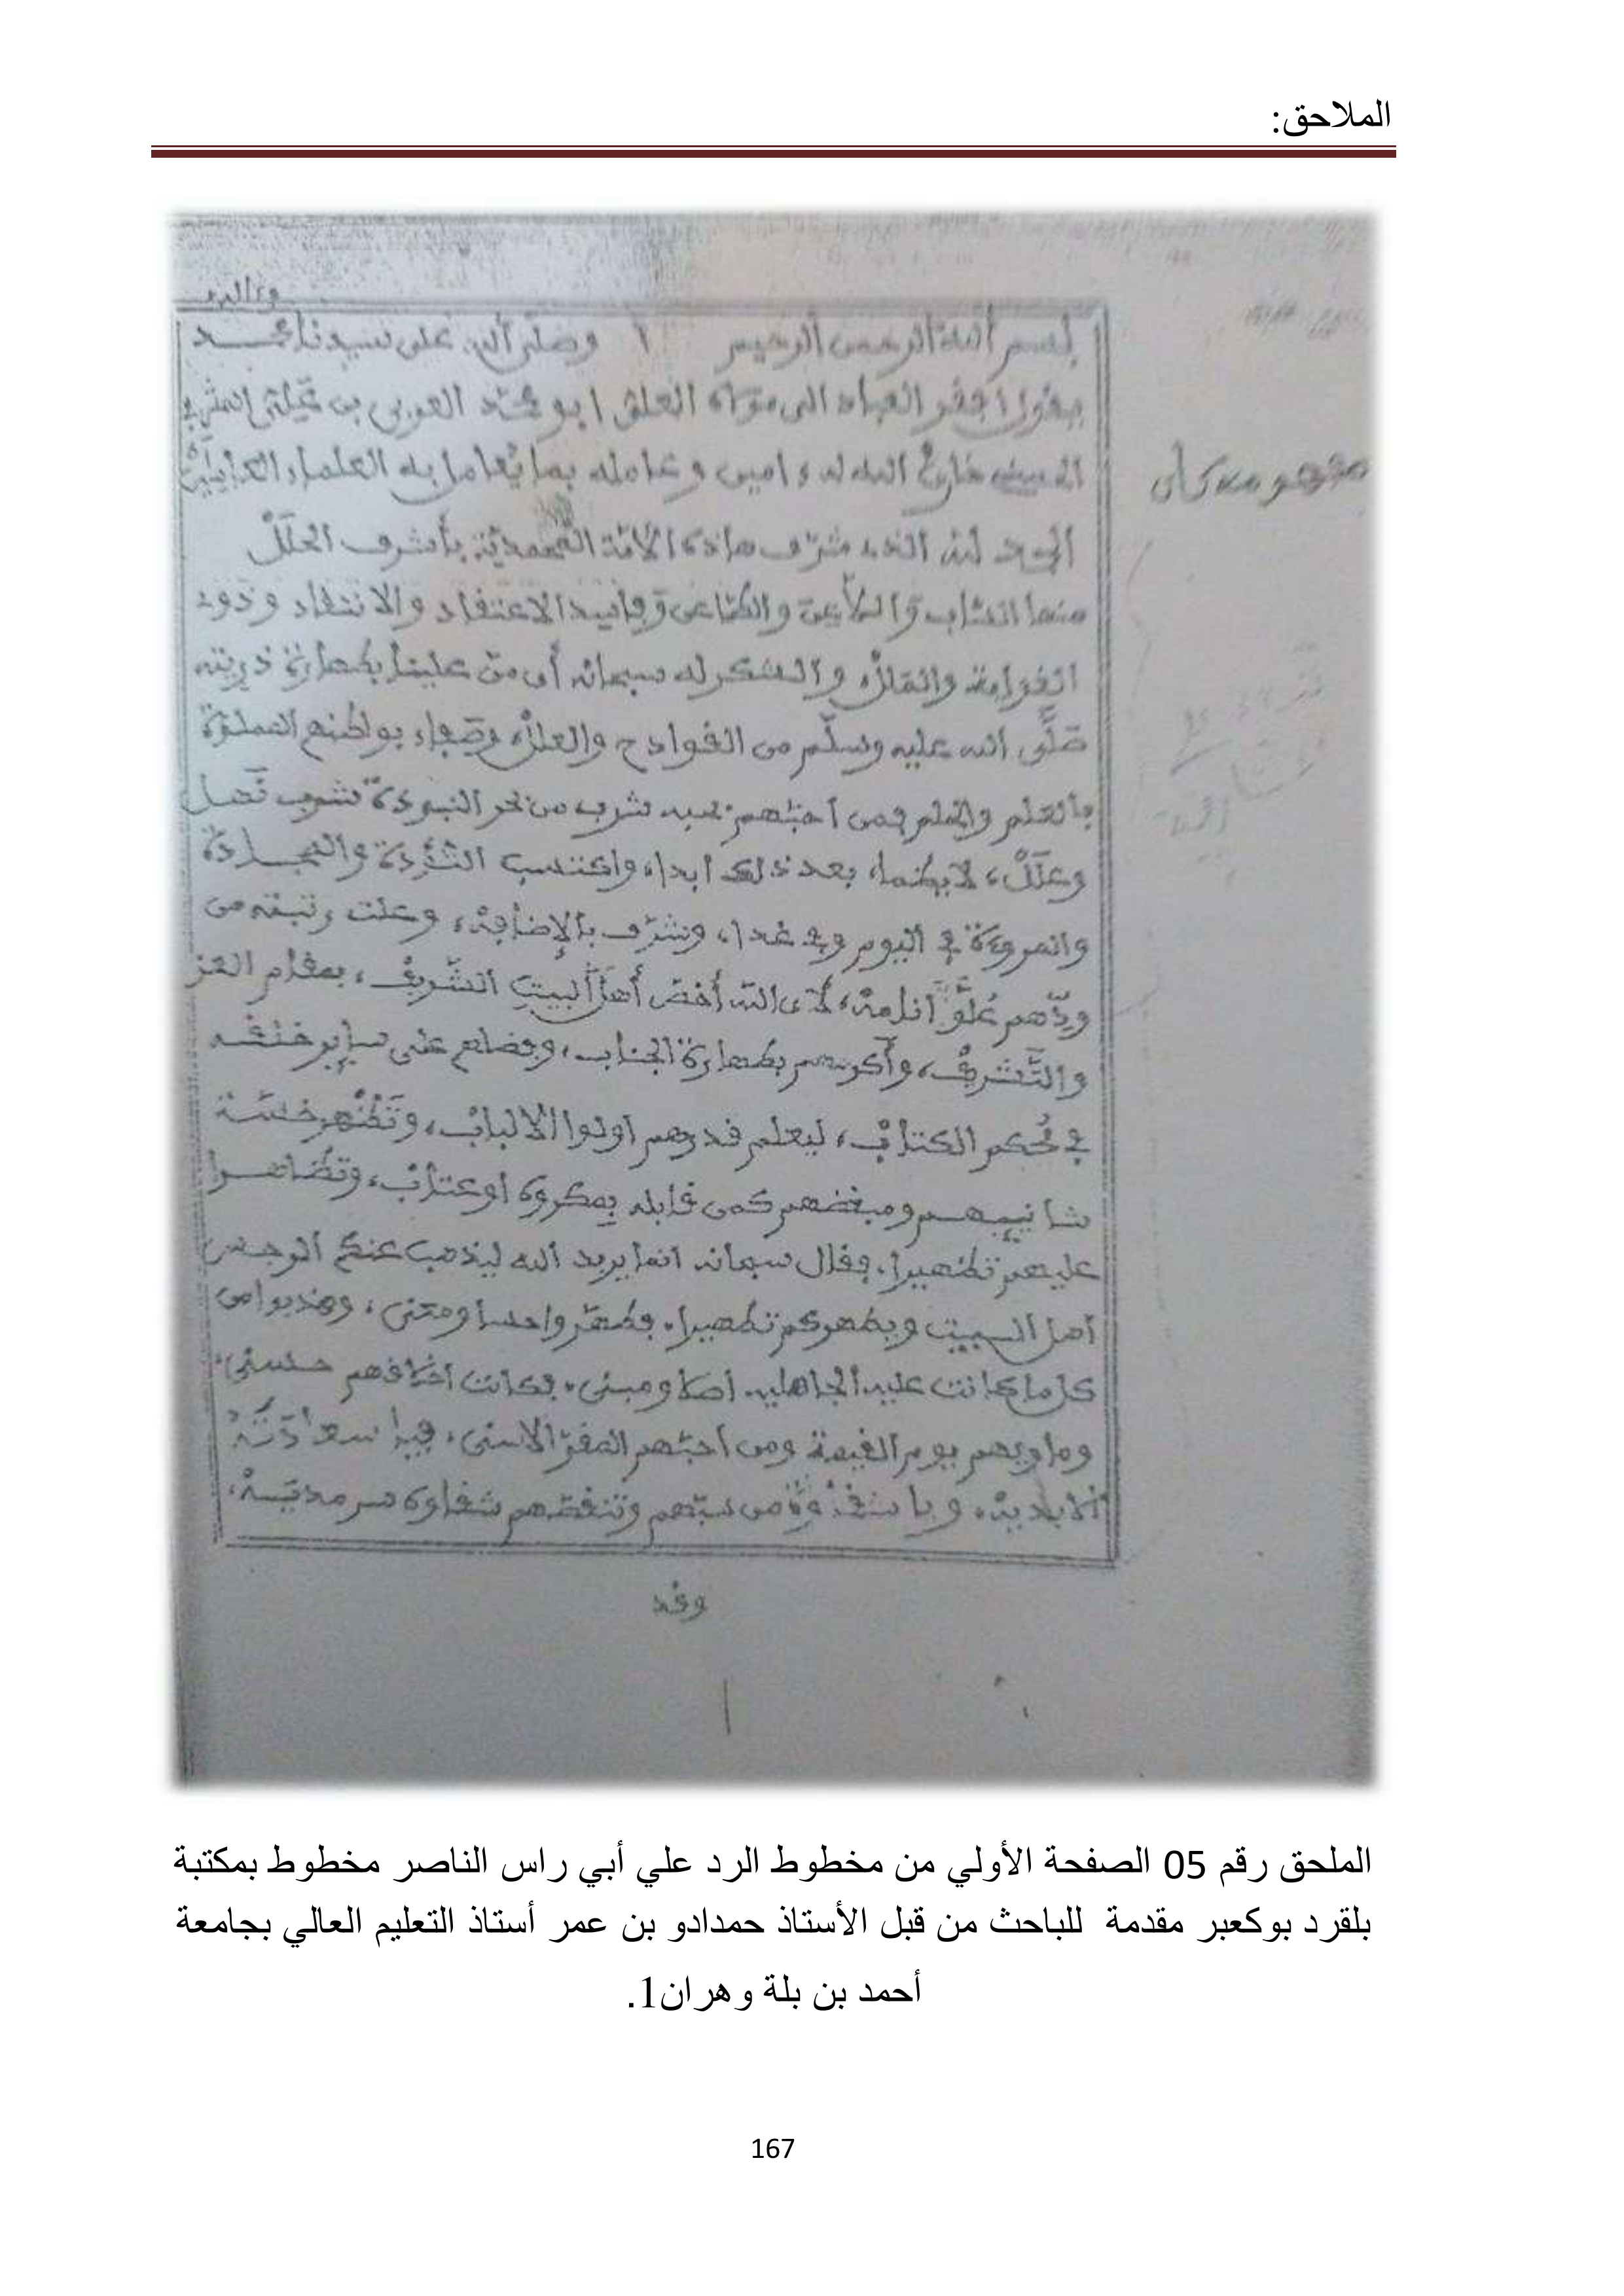 الملاحق:
وءاله
بسم الله الرحمن الرحيم وصلى الله على سيدنا محمد
يقول افقر العباد الى مولاه ابو محمد العربي بن
الله له ءامين وعامله بما يعامل به العلماء
الحمد لله الذي شرف هاذه الامة المحمدية بأشرف الحلل
والانتقاد وذوي
والشكر له سبحانه أن من علينا بطهارة ذريته
صلى الله عليه وسلم من القوادح والعلل وصفاء بواطنهم المملوة
بالعلم والحلم فمن احبهم شرب من بحر النبوءة شرب نهل
وعلل، لا يظما، بعد ذلك ابدا، واكتسب التؤدة
والمروءة في اليوم وفي غدا، وشرف بالإضافة، وعلت رتبته من
ودهم لأن الله أخص أهل البيت الشريف، بمقام العز
والتشريف، وأكرمهم بطهارة الجناب، وفضلهم على ساير خلقه
في محكم الكتاب، ليعلم قدرهم اولوا الالباب، وتظهر خسة
ومبغضهم كمن قابله بمكروه او عتاب،
عليهم تطهيرا، فقال سبحانه انما يريد الله ليذهب عنكم الرجس
أهل البيت ويطهركم تطهيرا، فطهر واحسا ومعنى، وهذبوا من
كل ما كانت عليه الجاهلية أصلا ومبنى، فكانت اخلاقهم حسنى،
وماويهم يوم القيمة ومن احبهم المقر الاسنى، فيا سعادته
الابدية، ويا من سبهم وتنقصهم شقاوة سرمدية،
وقد
الملحق رقم 05 الصفحة الأولي من مخطوط الرد علي أبي راس الناصر مخطوط بمكتبة
بلقرد بوكعبر مقدمة للباحث من قبل الأستاذ حمدادو بن عمر أستاذ التعليم العالي بجامعة
أحمد بن بلة وهران1.
167